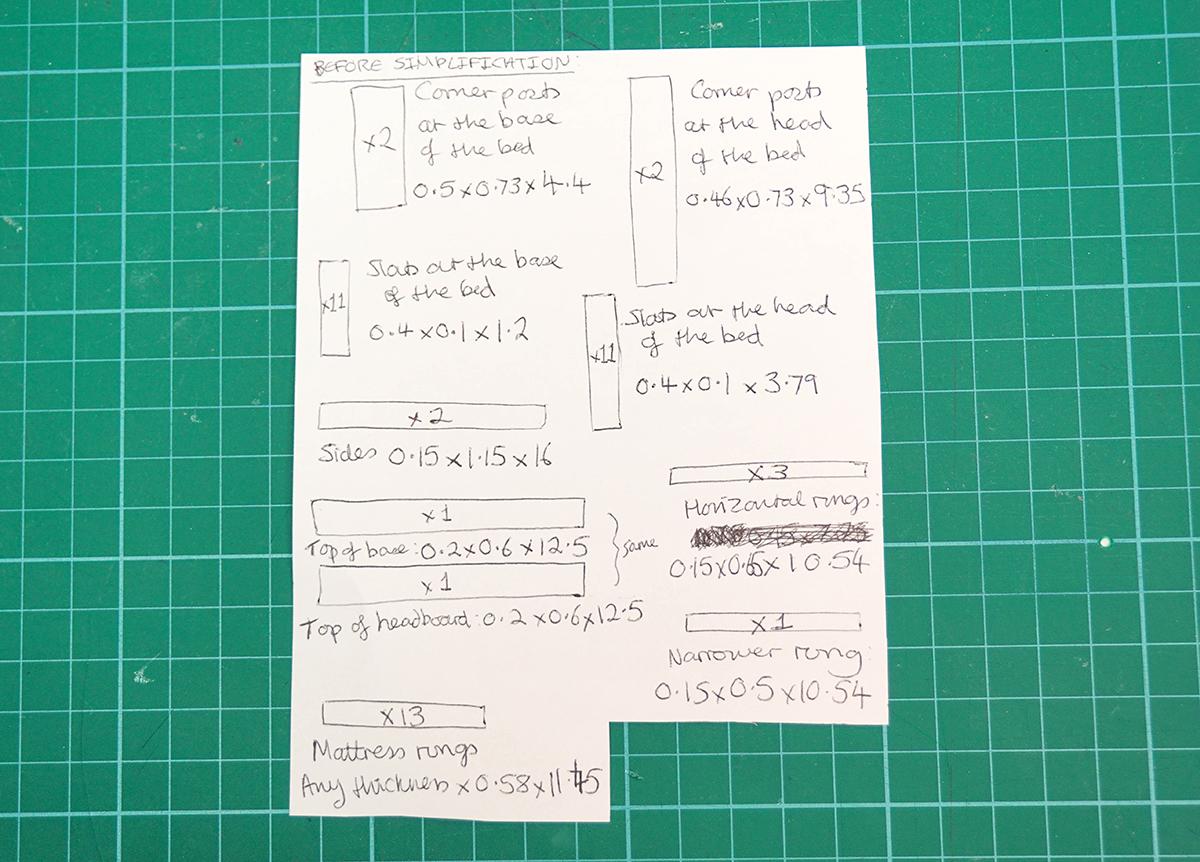 BEFORE SIMPLIFICATION:
x2
Corner posts
at the base
of the bed
0.5x0.73x4.4
x2
Corner posts
at the head
of the bed
0.46x0.73x9.35
x11
Slats at the base
of the bed
0.4x0.1x1.2
x11
Slats at the head
of the bed
0.4x0.1 x 3.79
x2
Sides 0.15x1.15x16
x3
Horizontal rungs:
0.15x0.65x10.54
x1
Top of base: 0.2x0.6x12.5
x1
Top of headboard: 0.2x0.6x12.5
same
x1
Narrower rung:
0.15x0.5x10.54
x13
Mattress rungs
Any thickness x0.58x